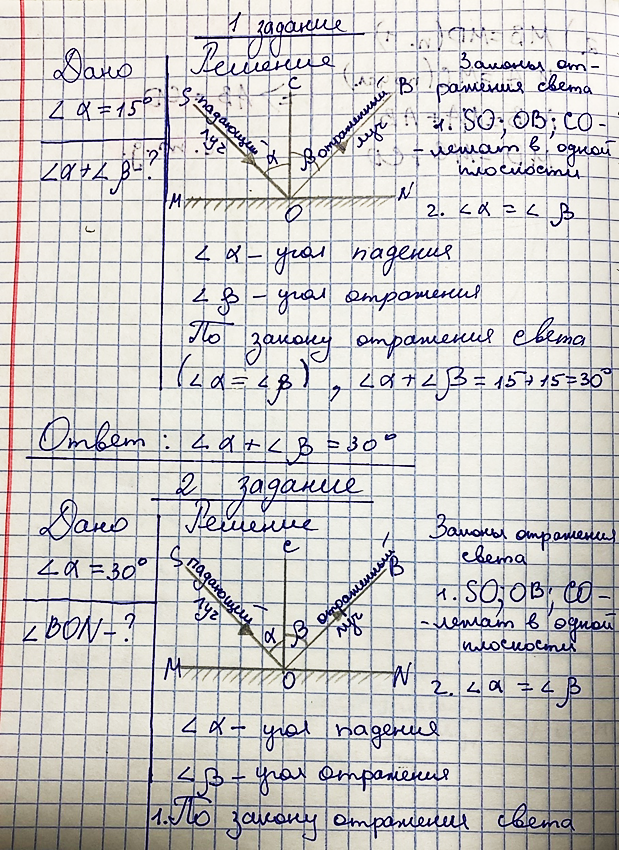 1 задание
Дано
∠α = 15°
∠α + ∠β - ?
Решение
S
C
B
падающий
луч
отраженный
луч
α
β
M
O
N
Законы от-
ражения света
1. SO; OB; CO -
- лежат в одной
плоскости
2. ∠α = ∠β
∠α - угол падения
∠β - угол отражения
По закону отражения света
(∠α = ∠β), ∠α + ∠β = 15 + 15 = 30°
Ответ: ∠α + ∠β = 30°
2 задание
Дано
∠α = 30°
∠BON - ?
Решение
S
C
B
падающий
луч
отраженный
луч
α
β
M
O
N
Законы отражения
света
1. SO; OB; CO -
- лежат в одной
плоскости
2. ∠α = ∠β
∠α - угол падения
∠β - угол отражения
1. По закону отражения света